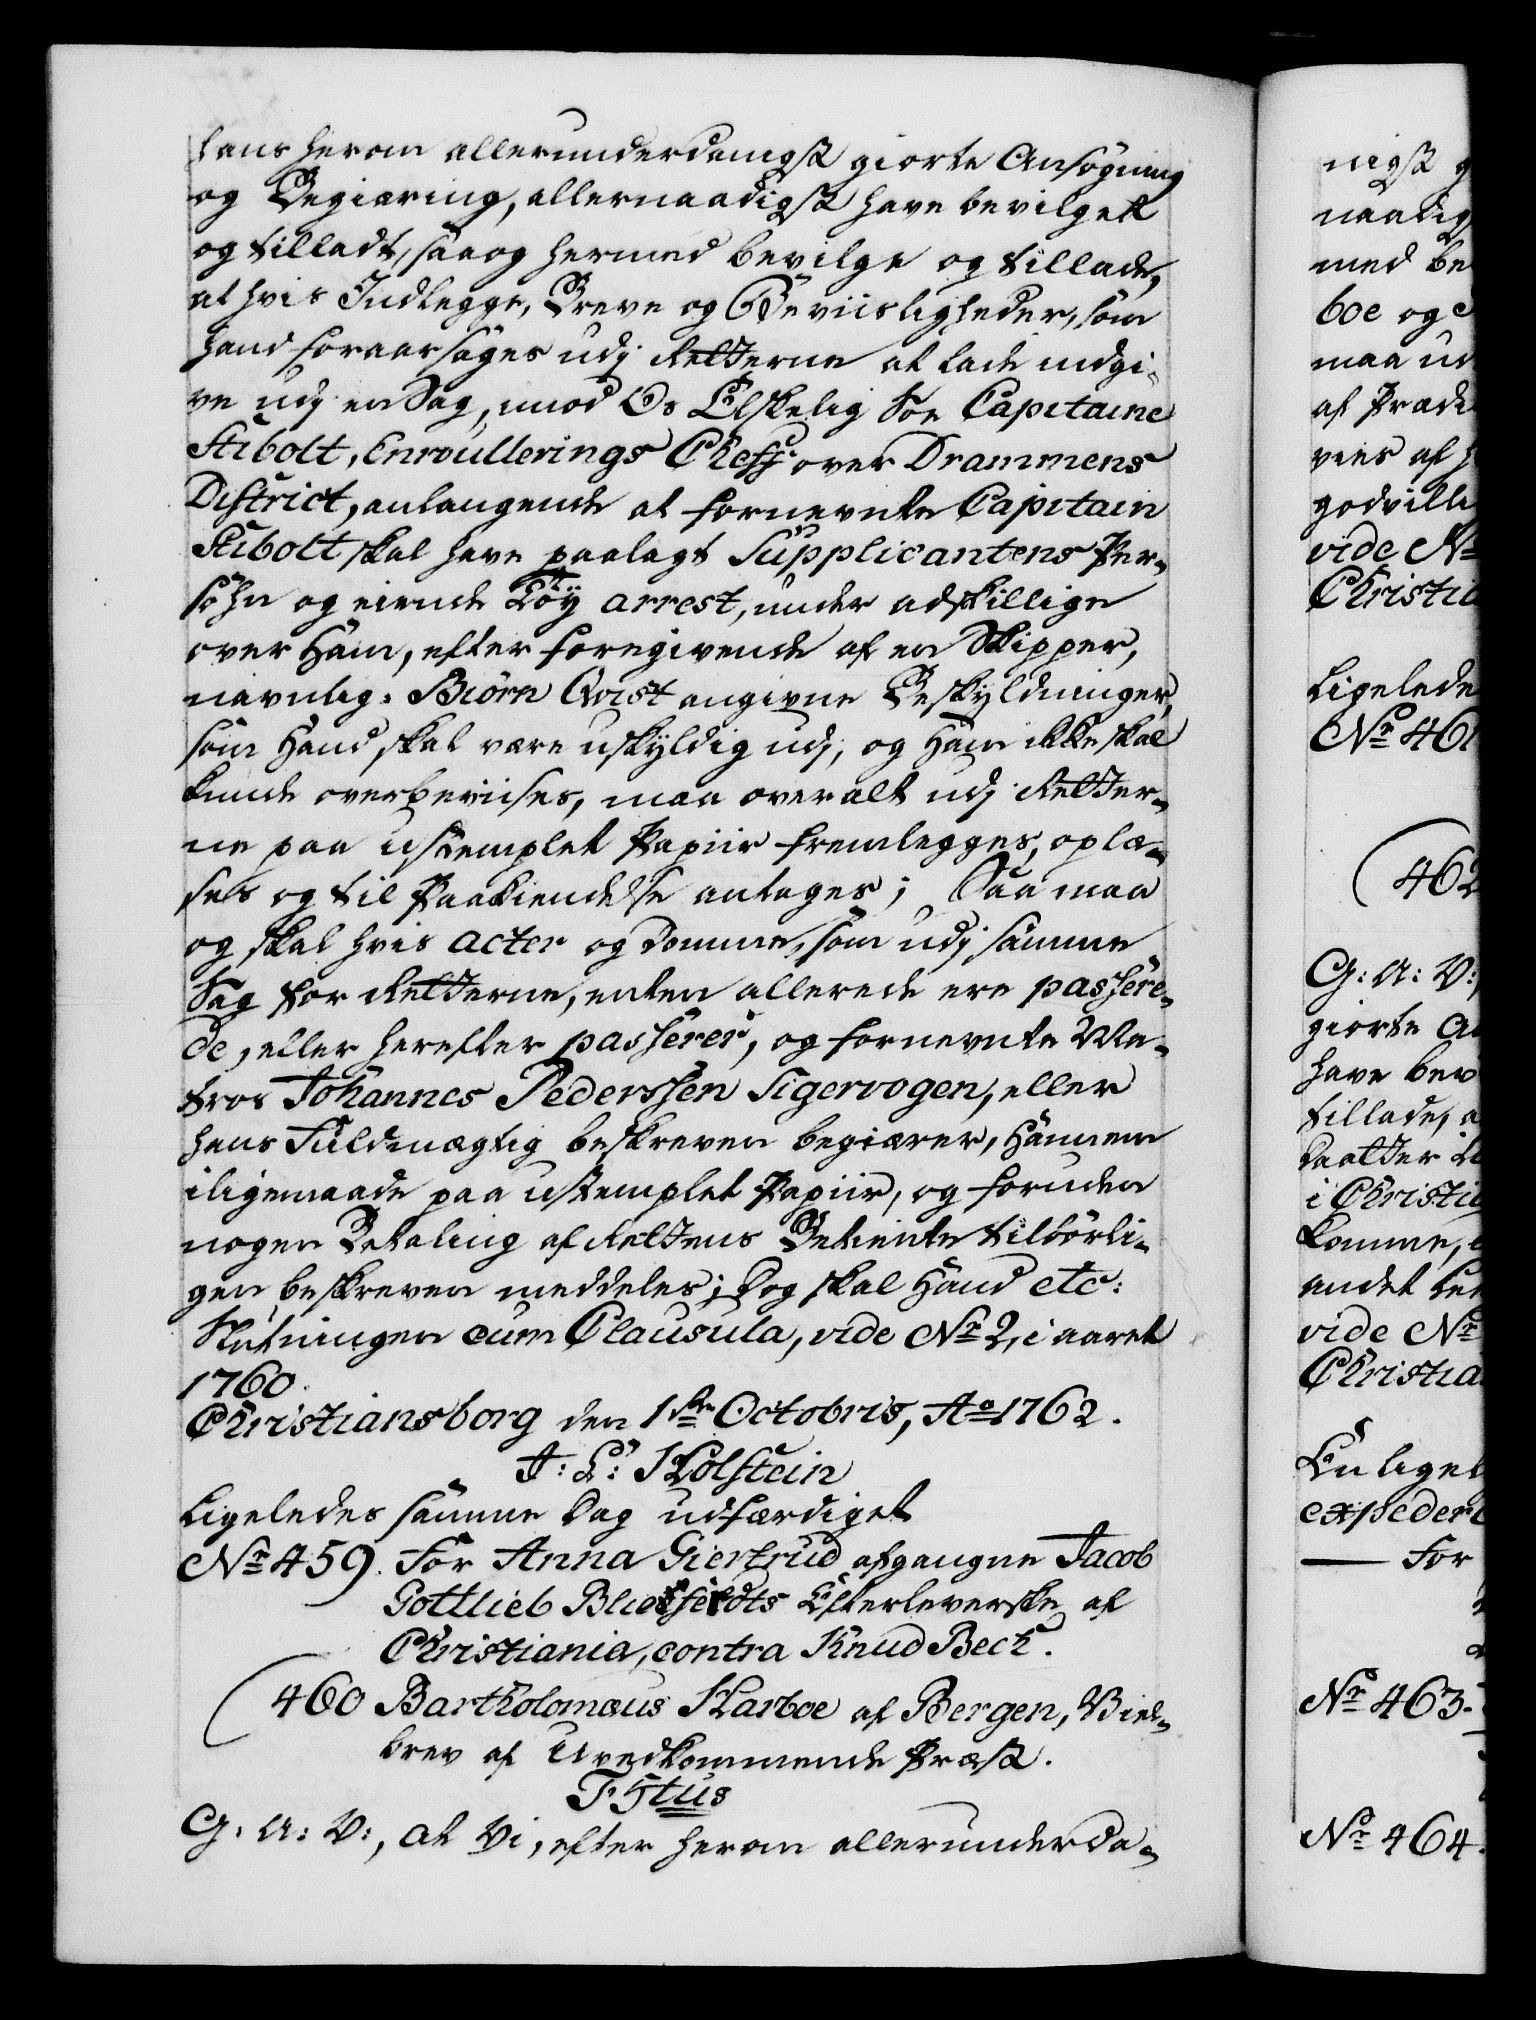 hans herom allerunderdanigst giorte Ansøgning
og Begiæring, allernaadigst have bevilget
og tilladt, saa og hermed bevilge og tillade,
at hvis Indlegge, Breve og Beviisligheder, som
hand foraarsages udj Retterne at lade indgi-
ve udj en Sag, imod Os Elskelig Hr Capitaine
Stibolt, Enroullerings Cheff over Drammens
District, anlangende at fornevnte Capitain
Stibolt skal have paalagt Supplicantens Per-
sohn og eiende Töy arrest, under adskillige
over Ham, efter foregivende af en Skipper,
navnlig: Biørn Qvist angivne Beskyldninger,
som Hand skal være uskyldig udj, og Ham ikke skal
kunde overbeviises, maa overalt udj Retter-
ne paa ustemplet Papiir fremlegges, oplæ-
ses og til Paakiendelse antages; Saa maa
og skal hvis acter og Domme, som udj samme
Sag for Retterne, enten allerede ere passere-
de, eller herefter passerer, og fornevnte Ma-
tros Johannes Pederssen Sigervogen, eller
hans Fuldmægtig beskreven begiærer, Hannem
iligemaade paa ustemplet Papiir, og foruden
nogen Betaling af Rettens Betiente tilbørli-
gen beskreven meddeles; Dog skal Hand etc:
Slutningen cum Clausula, vide No 2, i aaret
1760.
Christiansborg den 1ste Octobris, Ao 1762.
J: L: Holstein
Ligeledes samme Dag udfærdiget
No 459. For Anna Giertrud afgangne Jacob
Gottlieb Efterleverske af
Christiania, contra Knud Beck.
460 Bartholomæus Harboe af Bergen, Viel-
brev af Uvedkommende Præst.
G: A: V:, at Vi, efter herom allerunderda-
nigst g
naadig
med be
boe og
maa ud
af Præd
vies af h
godvilli
vide No
Christia
Ligelede
No 461
462
G: A: V:
giorte An
have bev
tillade, a
Daatter
i Christia
Komme,
andet
vide No
Christia
En ligel
expeder
For
No 463.
No 464.